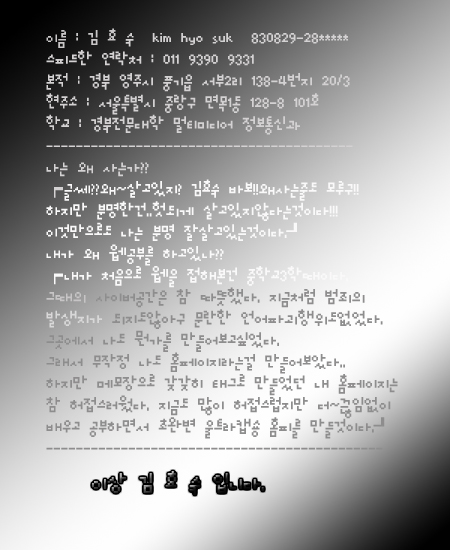 이름 : 김 효 수 kim hyo suk 830829-28*****
스피드한 연락처 : 011 9390 9331
본적 : 경북 영주시 풍기읍 서부2리 138-4번지 20/3
현주소 : 서울특별시 중랑구 면목1동 128-8 101호
학교 : 경북전문대학 멀티미디어 정보통신과
나는 왜 사는가??
「글쎄??왜~살고있지? 김효수 바보!!왜사는줄도 모루구!!
하지만 분명한건,,헛되게 살고있지않다는것이다!!!
이것만으로도 나는 분명 잘살고있는것이다.」
내가 왜 웹공부를 하고있나??
「내가 처음으로 웹을 접해본건 중학교3학때이다.
그때의 사이버공간은 참 따뜻했다. 지금처럼 범죄의
발생지가 되지도않아구 문란한 언어파괴행위도없었다.
그곳에서 나도 뭔가를 만들어보고싶었다.
그래서 무작정 나도 홈페이지라는걸 만들어보았다..
하지만 메모장으로 갖갖히 태그로 만들었던 내 홈페이지는
참 허접스러웠다. 지금도 많이 허접스럽지만 더~끊임없이
배우고 공부하면서 초완변 울트라캡숑 홈피를 만들것이다.」
이상 김 효 수 입니다.